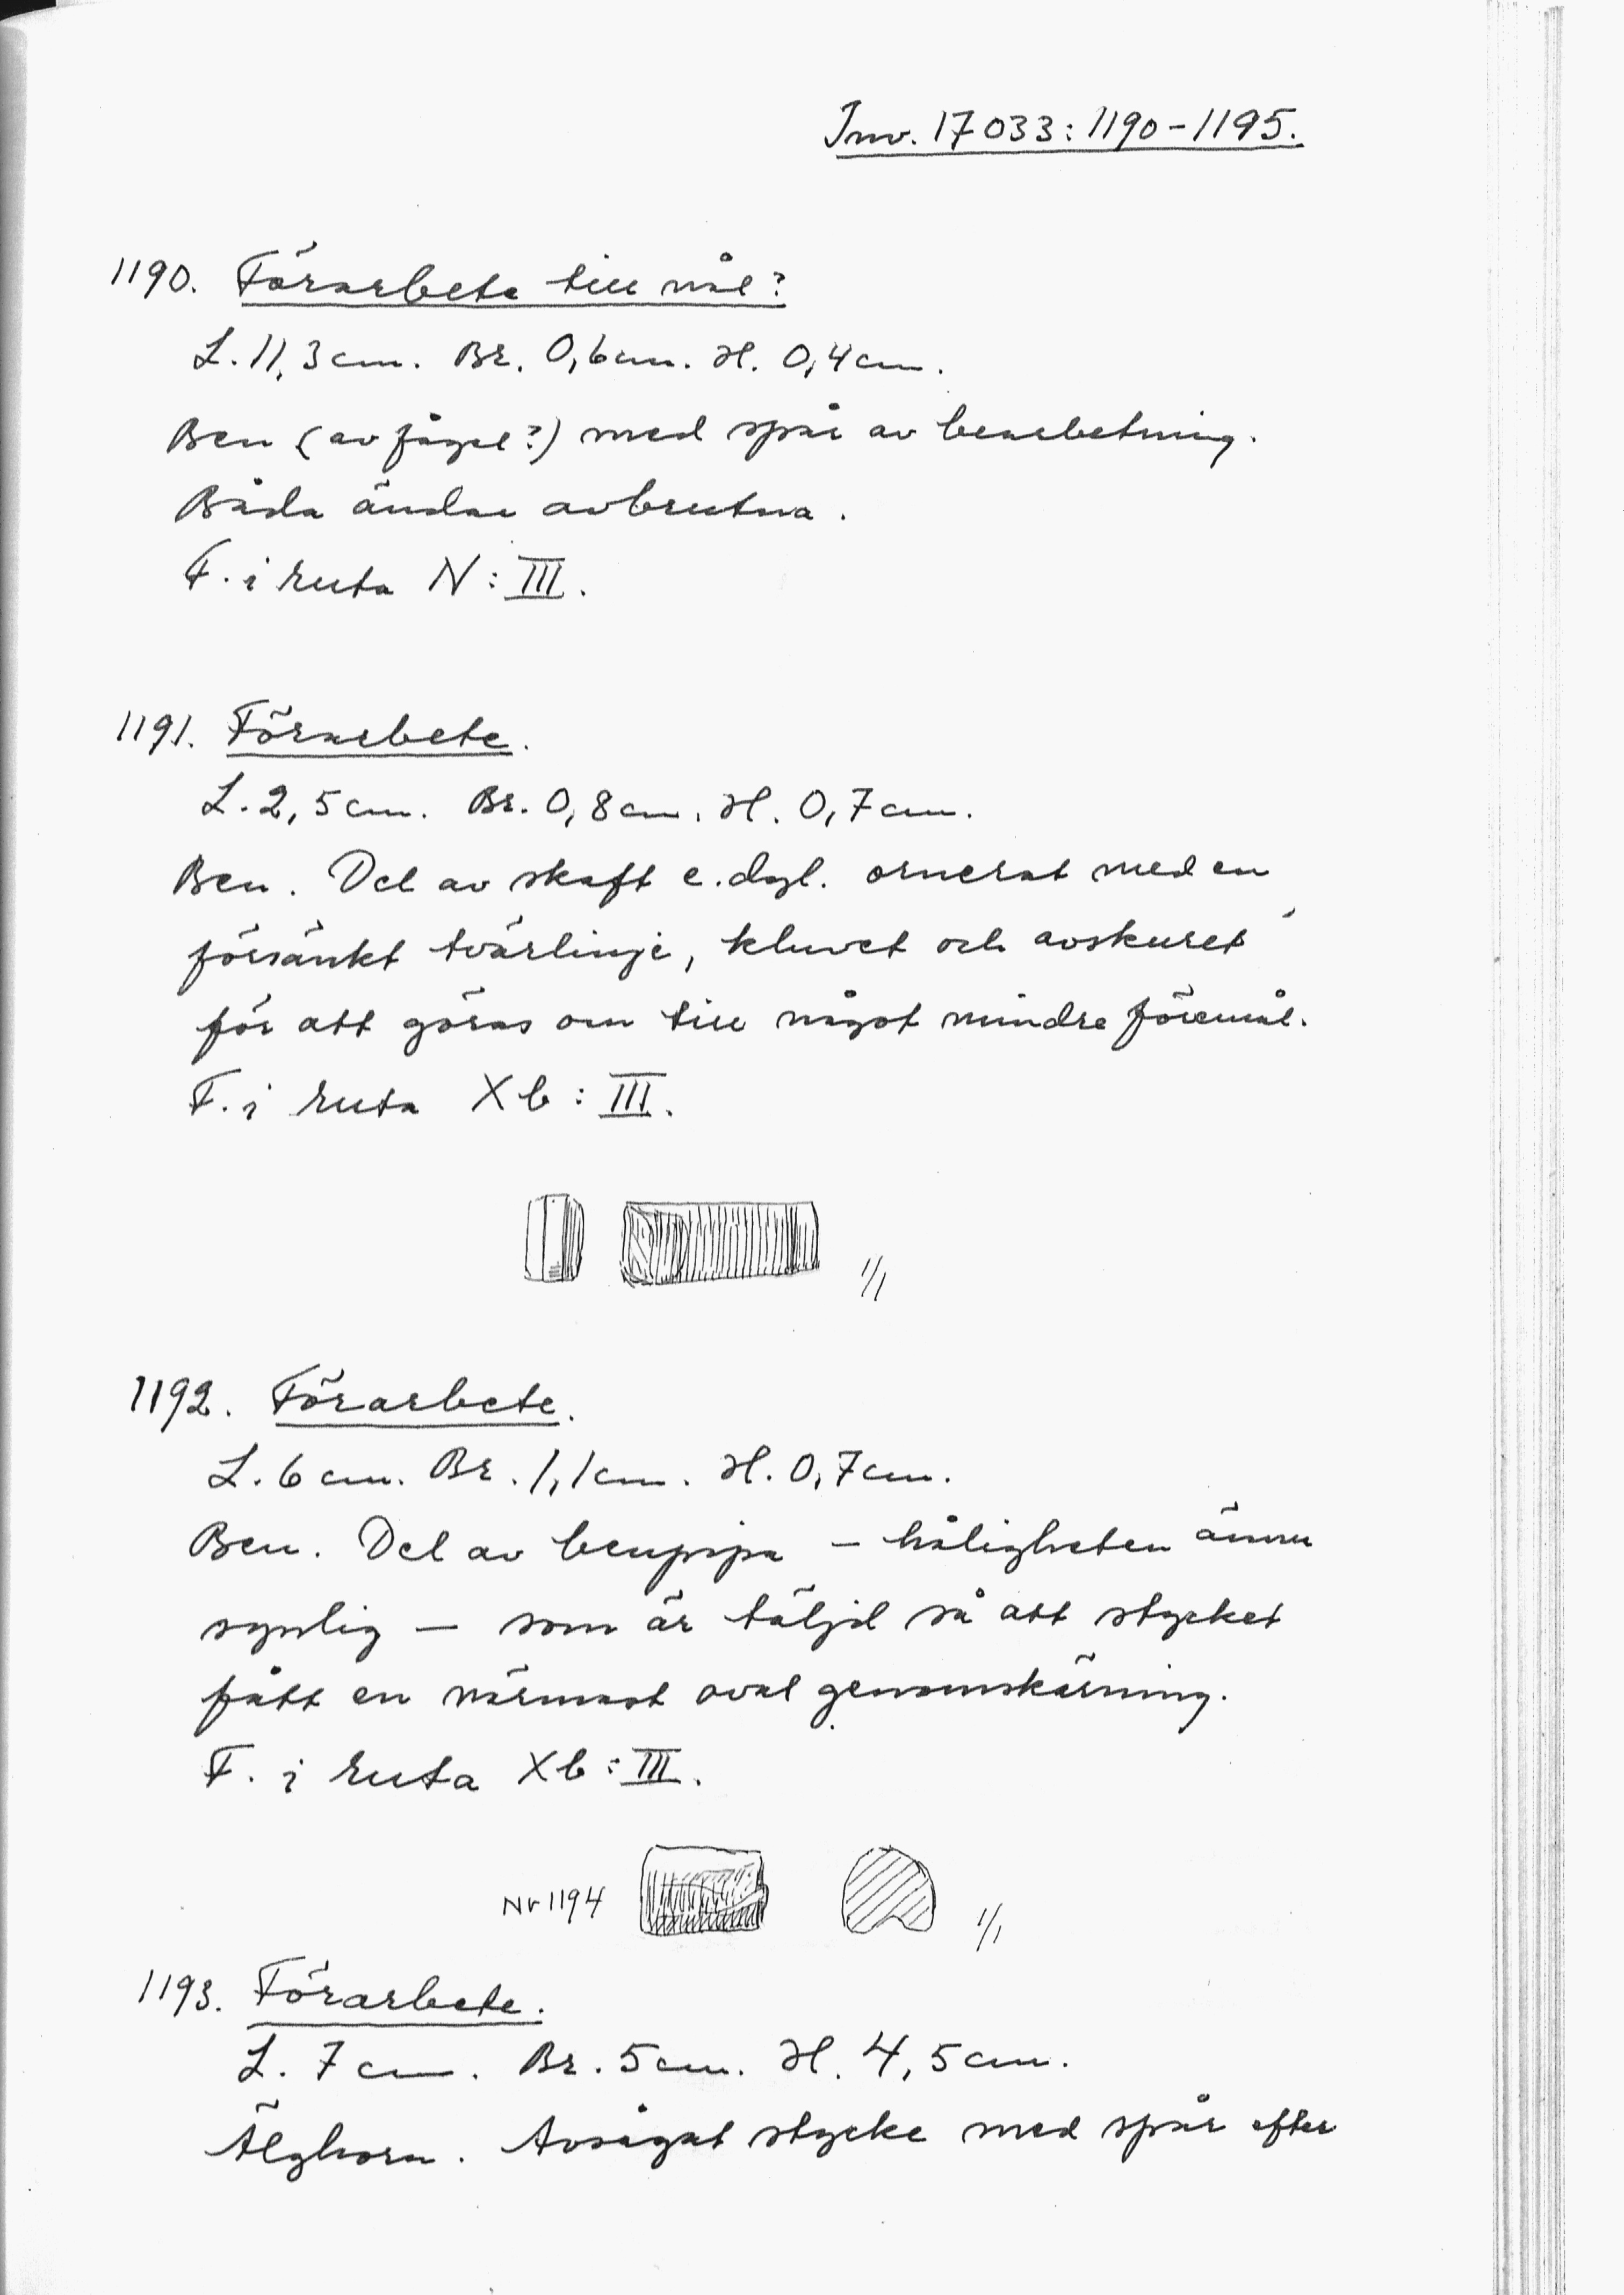 Inv. 17033:1190-1195.
1190. Förarbete till nål?
L. 11,3 cm. Br. 0,6 cm. H. 0,4 cm.
Ben (av fågel?) med spår av bearbetning.
Båda ändar avbrutna.
F. i ruta N:III.
1191. Förarbete.
L. 2,5 cm. Br. 0,8 cm. H. 0,7 cm.
Ben. Del av skaft e.dyl. ornerat med en
försänkt tvärlinje, kluvet och avskuret
för att göras om till något mindre föremål.
F. i ruta Xb:III.
1/1
1192. Förarbete.
L. 6 cm. Br. 1,1 cm. H. 0,7 cm.
Ben. Del av benpipa - håligheten ännu
synlig - som är täljd så att stycket
fått en närmast oval genomskärning.
F. i ruta Xb:III.
Nr 1194 1/1
1193. Förarbete.
L. 7 cm. Br. 5 cm. H. 4,5 cm.
Älghorn. Avsågat stycke med spår efter